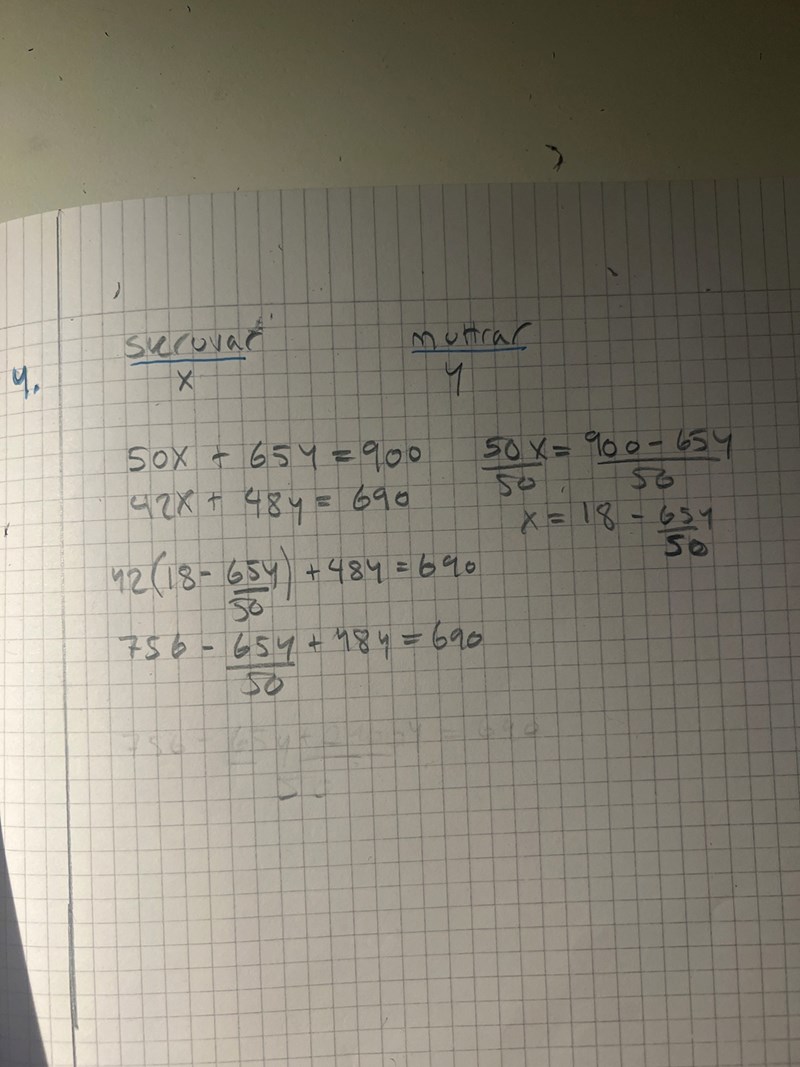 skruvar muttrar
4. x y
50x + 65y = 900
42x + 48y = 690
50x/50 = (900 - 65y)/50
x = 18 - 65y/50
42(18 - 65y/50) + 48y = 690
756 - 65y/50 + 48y = 690